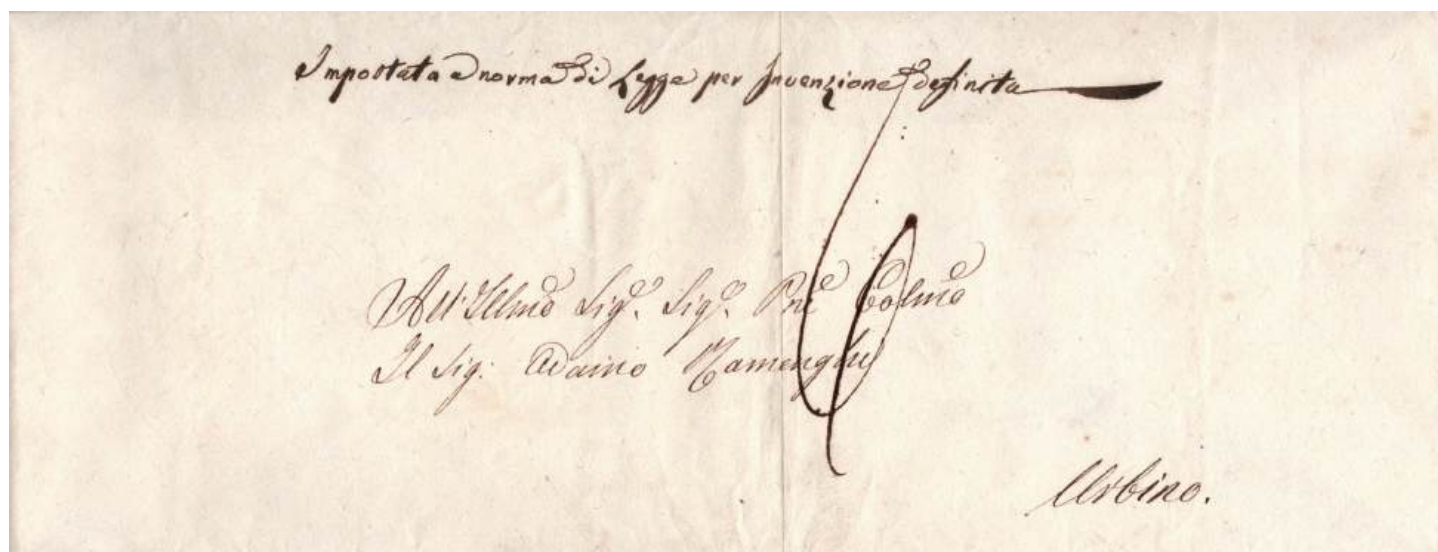 Impostata a norma di Legge per Invenzione definita
All'Illmo Sigr. Sigr. Pne Colmo
Il Sig:
Urbino.